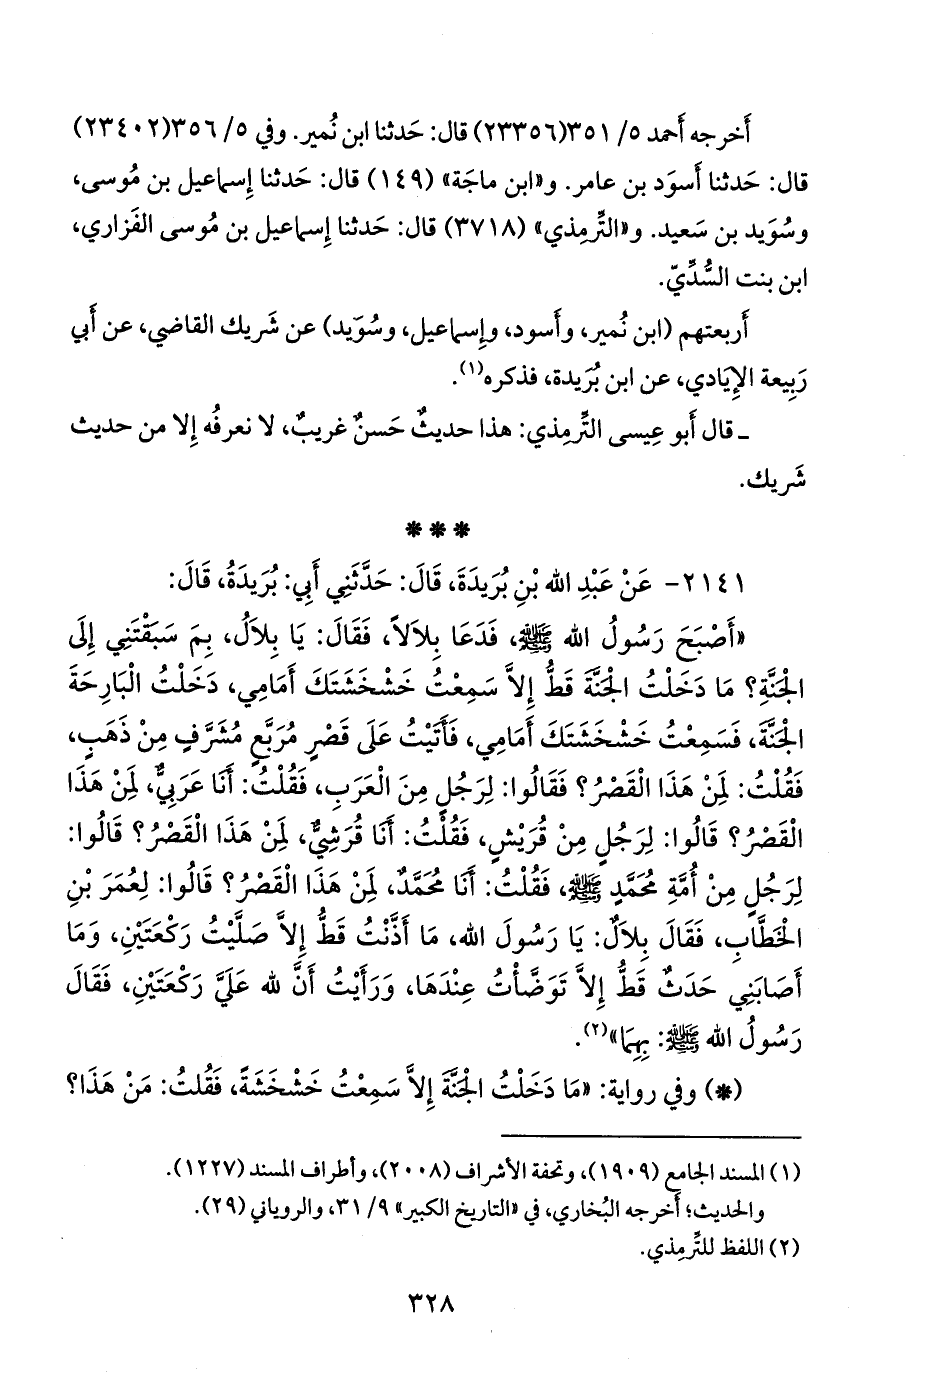 أَخرجه أَحمد ٥/ ٣٥١(٢٣٣٥٦) قال: حَدثنا ابن نُمير. وفي ٥/ ٣٥٦(٢٣٤٠٢)
قال: حَدثنا أَسوَد بن عامر. و«ابن ماجَة» (١٤٩) قال: حَدثنا إِسماعيل بن مُوسى،
وسُوَيد بن سَعيد. و«التِّرمِذي» (٣٧١٨) قال: حَدثنا إِسماعيل بن مُوسى الفَزاري،
ابن بنت السُّدِّيّ.
أَربعتهم (ابن نُمير، وأَسود، وإِسماعيل، وسُوَيد) عن شَريك القاضي، عن أَبي
رَبِيعة الإِيَادي، عن ابن بُرَيدة، فذكره(١).
ـ قال أَبو عِيسى التِّرمِذي: هذا حديثٌ حَسنٌ غريبٌ، لا نعرفُه إِلا من حديث
شَريك.
* * *
٢١٤١- عَنْ عَبْدِ الله بْنِ بُرَيدَةَ، قَالَ: حَدَّثَنِي أَبِي: بُرَيدَةُ، قَالَ:
«أَصْبَحَ رَسُولُ الله ﷺ، فَدَعَا بِلاَلاً، فَقَالَ: يَا بِلاَلُ، بِمَ سَبَقْتَنِي إِلَى
الجَنَّةِ؟ مَا دَخَلْتُ الجَنَّةَ قَطُّ إِلاَّ سَمِعْتُ خَشْخَشَتَكَ أَمَامِي، دَخَلْتُ الْبَارِحَةَ
الجَنَّةَ، فَسَمِعْتُ خَشْخَشَتَكَ أَمَامِي، فَأَتَيْتُ عَلَى قَصْرٍ مُرَبَّعٍ مُشَرَّفٍ مِنْ ذَهَبٍ،
فَقُلْتُ: لِمَنْ هَذَا الْقَصْرُ؟ فَقَالُوا: لِرَجُلٍ مِنَ الْعَرَبِ، فَقُلْتُ: أَنَا عَرَبِيٌّ، لِمَنْ هَذَا
الْقَصْرُ؟ قَالُوا: لِرَجُلٍ مِنْ قُرَيْشٍ، فَقُلْتُ: أَنَا قُرَشِيٌّ، لِمَنْ هَذَا الْقَصْرُ؟ قَالُوا:
لِرَجُلٍ مِنْ أُمَّةِ مُحَمَّدٍ ﷺ، فَقُلْتُ: أَنَا مُحَمَّدٌ، لِمَنْ هَذَا الْقَصْرُ؟ قَالُوا: لِعُمَرَ بْنِ
الخَطَّابِ، فَقَالَ بِلاَلٌ: يَا رَسُولَ الله، مَا أَذَّنْتُ قَطُّ إِلاَّ صَلَّيْتُ رَكْعَتَيْنِ، وَمَا
أَصَابَنِي حَدَثٌ قَطُّ إِلاَّ تَوَضَّأْتُ عِنْدَهَا، وَرَأَيْتُ أَنَّ لله عَلَيَّ رَكْعَتَيْنِ، فَقَالَ
رَسُولُ الله ﷺ: بِهِمَا»(٢).
(*) وفي رواية: «مَا دَخَلْتُ الجَنَّةَ إِلاَّ سَمِعْتُ خَشْخَشَةً، فَقُلتُ: مَنْ هَذَا؟
(١) المسند الجامع (١٩٠٩)، وتحفة الأشراف (٢٠٠٨)، وأطراف المسند (١٢٢٧).
والحديث؛ أخرجه البُخاري، في «التاريخ الكبير» ٩/ ٣١، والروياني (٢٩).
(٢) اللفظ للتِّرمِذي.
٣٢٨